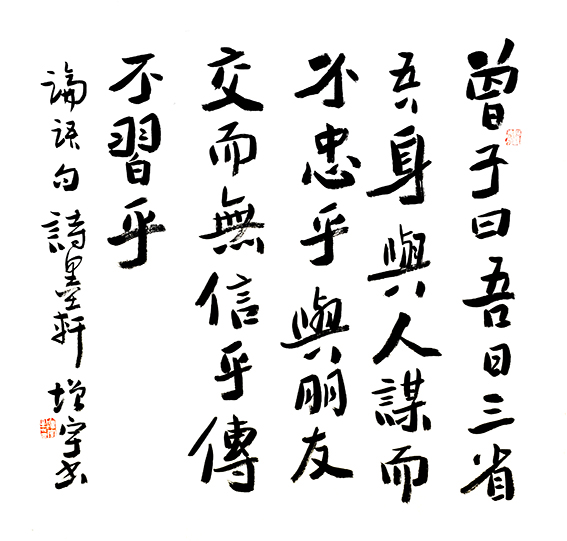 曾子曰吾日三省
吾身與人謀而
不忠乎與朋友
交而無信乎傳
不習乎
論語句 詩墨軒 增宇书